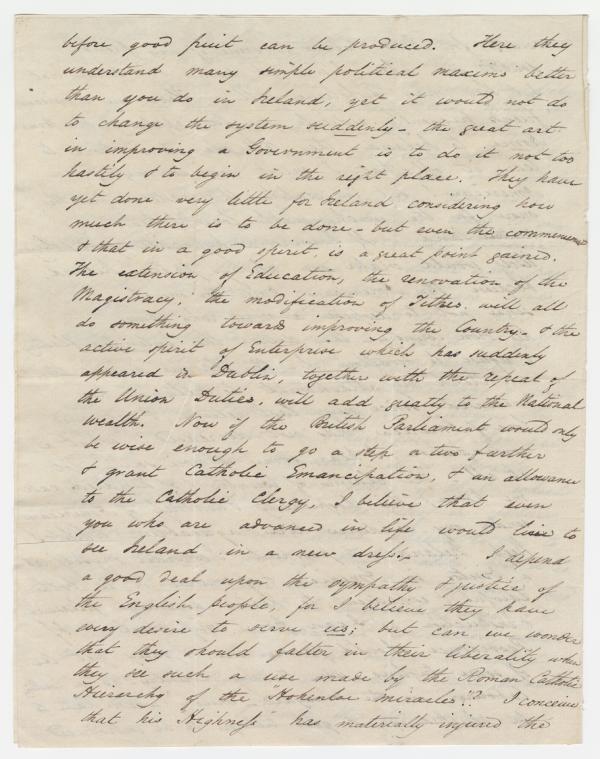 before good fruit can be produced. Here they
understand many simple political maxims better
than you do in Ireland, yet it would not do
to change the system suddenly - the great art
in improving a Government is to do it not too
hastily & to begin in the right place. They have
yet done very little for Ireland considering how
much there is to be done - but even the commencement
& that in a good spirit, is a great point gained.
The extension of Education, the renovation of the
Magistracy, the modification of Tithes will all
do something towards improving the Country - & the
active spirit of Enterprise which has suddenly
appeared in Dublin, together with the repeal of
the Union Duties, will add greatly to the National
wealth. Now if the British Parliament would only
be wise enough to go a step a two further
& grant Catholic Emancipation, & an allowance
to the Catholic Clergy, I believe that even
you who are advanced in life would live to
see Ireland in a new dress. I depend
a good deal upon the sympathy & justice of
the English people, for I believe they have
every desire to serve us; but can we wonder
that they should falter in their liberality when
they see such a use made by the Roman Catholic
Hierarchy of the "Hohenloe miracles"? I conceive
that his Highness has materially injured the